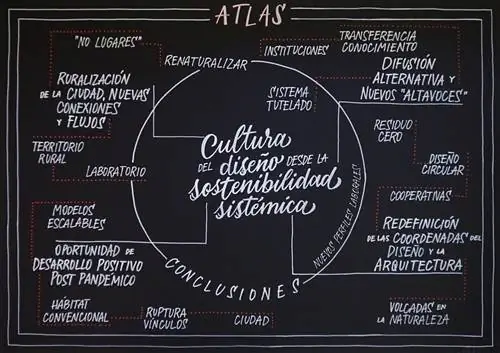 ATLAS
"NO LUGARES"
RENATURALIZAR
INSTITUCIONES
TRANSFERENCIA
CONOCIMIENTO
RURALIZACIÓN
DE LA CIUDAD, NUEVAS
CONEXIONES
Y FLUJOS
SISTEMA
TUTELADO
DIFUSIÓN
ALTERNATIVA Y
NUEVOS "ALTAVOCES"
TERRITORIO
RURAL
LABORATORIO
Cultura
DEL diseño DESDE LA
sostenibilidad
sistémica
RESIDUO
CERO
DISEÑO
CIRCULAR
COOPERATIVAS
NUEVOS PERFILES LABORALES
MODELOS
ESCALABLES
OPORTUNIDAD DE
DESARROLLO POSITIVO
POST PANDÉMICO
REDEFINICIÓN
DE LAS COORDENADAS DEL
DISEÑO Y LA
ARQUITECTURA
CONCLUSIONES
HÁBITAT
CONVENCIONAL
RUPTURA
VÍNCULOS
CIUDAD
VOLCADAS EN
LA NATURALEZA